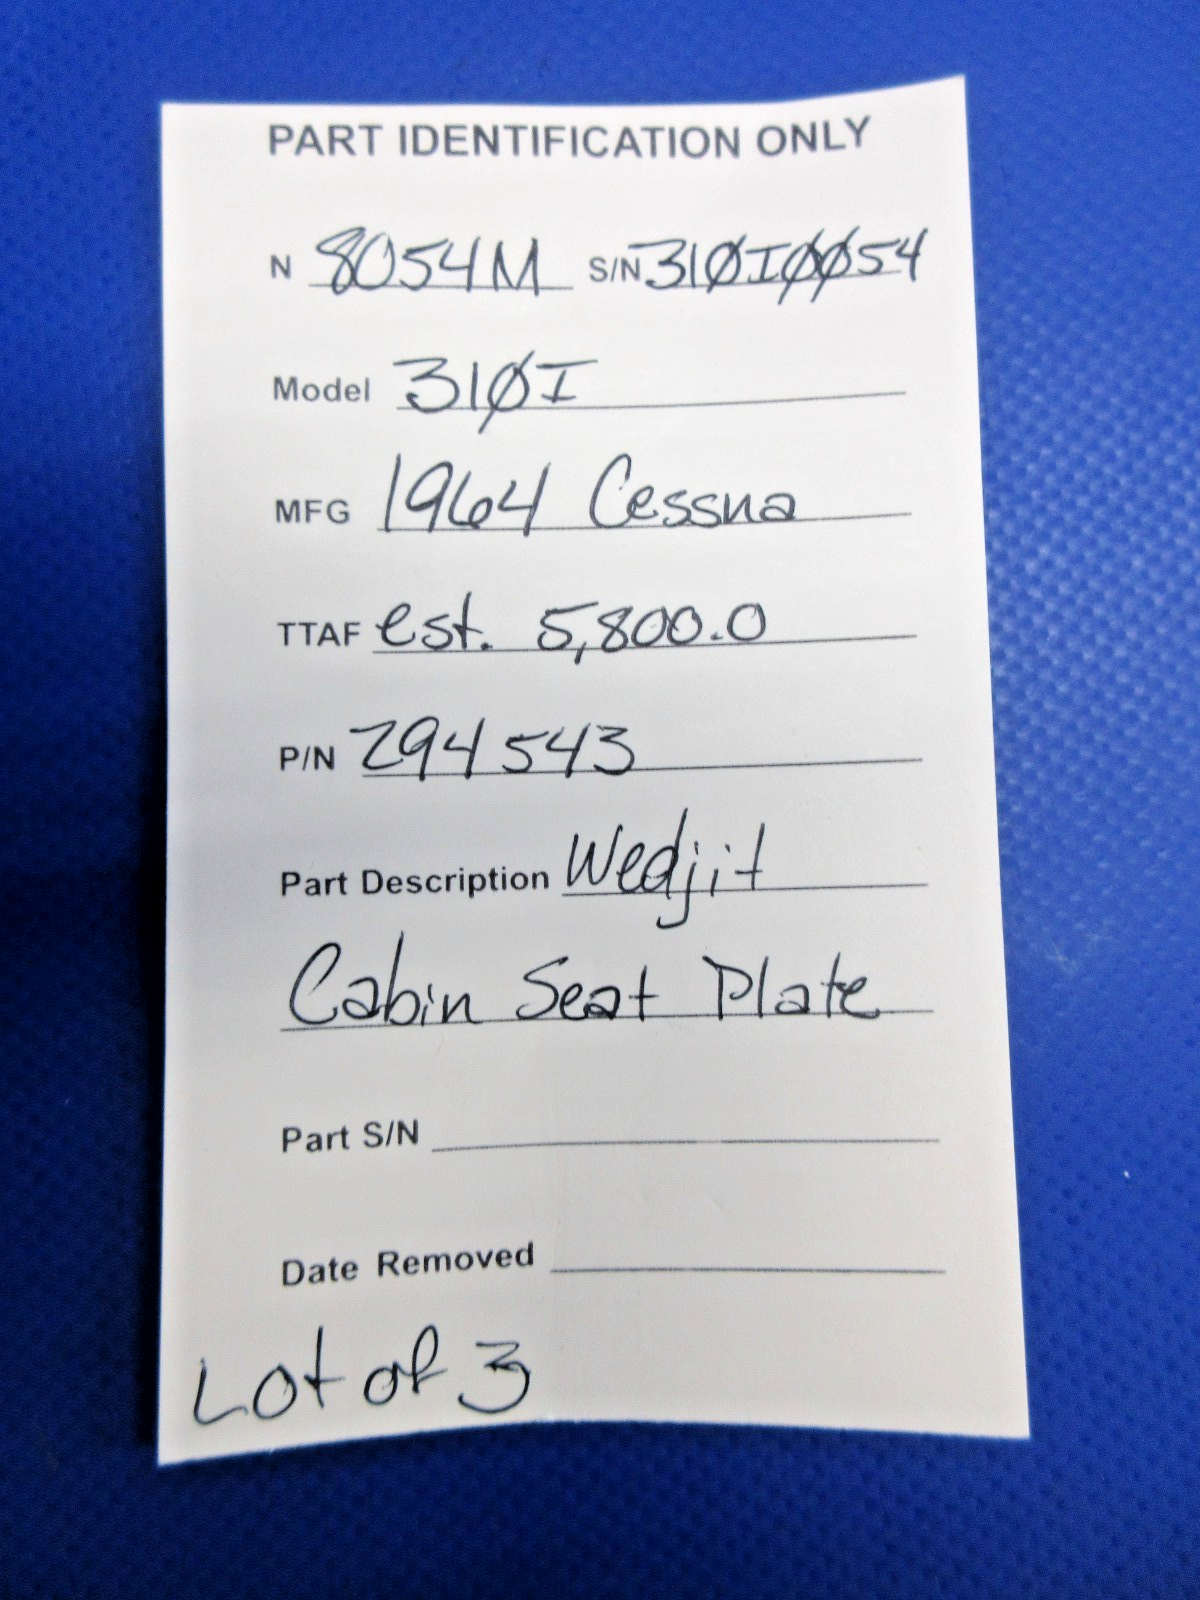 PART IDENTIFICATION ONLY
N 8054M S/N 310I0054
Model 310I
MFG 1964 Cessna
TTAF est. 5,800.0
P/N 294543
Part Description Wedjit
Cabin Seat Plate
Part S/N
Date Removed
Lot of 3